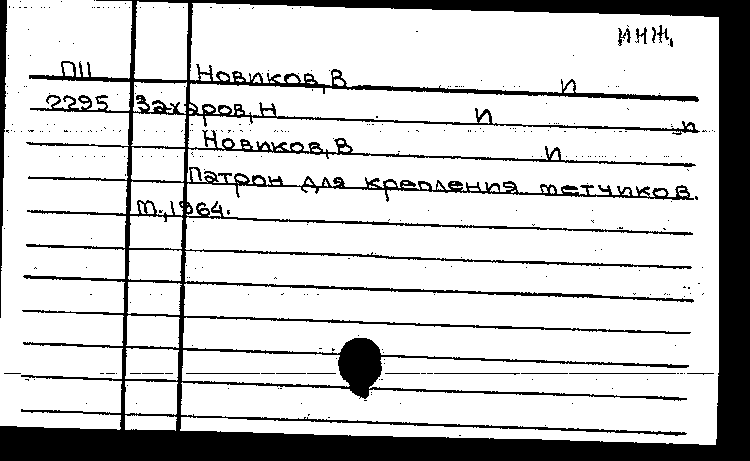 инж.
П11 Новиков, В. и
2295 Захаров, Н. и и
Новиков, В. и
Патрон для крепления метчиков.
М., 1964.